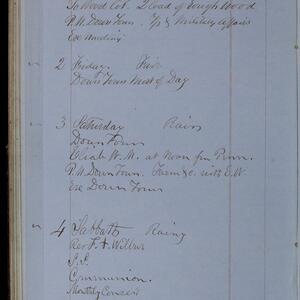 To Wood Lot. Dload of rough Wood
P.M. Down Town. T/p & Military Affairs
Eve Reading
2 Friday Fair
Down Town Most of Day
3 Saturday Rain
Down Town
Elijah W. M. at Noon fm Penn.
P.M. Down Town. Farm &c. with E.W.
Eve Down Town
4 Sabbath Rainy
Rev F. A. Wilbur
S.S.
Communion.
Monthly Concert